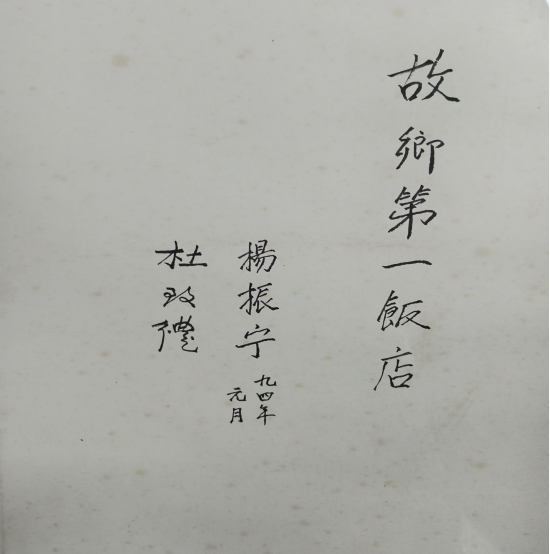 故鄉第一飯店
楊振宁
九四年
元月
杜致禮